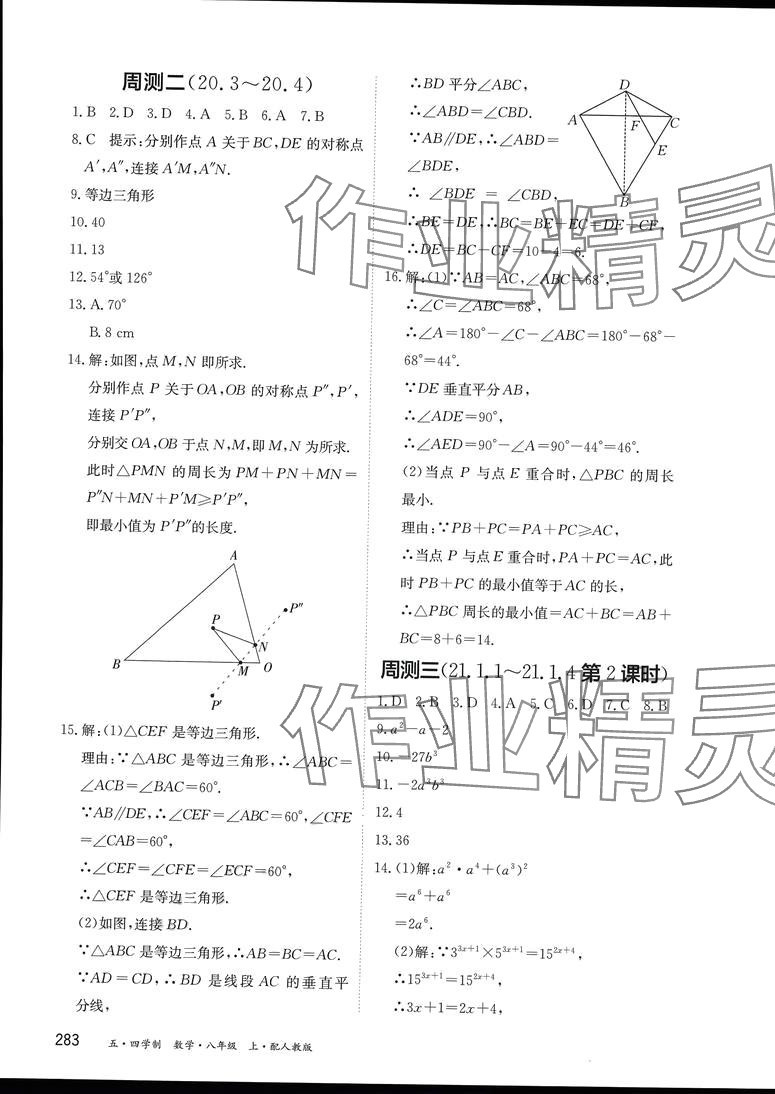 周测二(20.3～20.4)
1.B 2.D 3.D 4.A 5.B 6.A 7.B
8.C 提示:分别作点 A 关于 BC,DE 的对称点
A′,A″,连接 A′M,A″N.
9.等边三角形
10.40
11.13
12.54°或 126°
13.A.70°
B.8 cm
14.解:如图,点 M,N 即所求.
分别作点 P 关于 OA,OB 的对称点 P″,P′,
连接 P′P″,
分别交 OA,OB 于点 N,M,即 M,N 为所求.
此时△PMN 的周长为 PM+PN+MN=
P″N+MN+P′M⩾P′P″,
即最小值为 P′P″的长度.
A
P″
P
N
B
M
O
P′
15.解:(1)△CEF 是等边三角形.
理由:∵△ABC 是等边三角形,∴∠ABC=
∠ACB=∠BAC=60°.
∵AB∥DE,∴∠CEF=∠ABC=60°,∠CFE
=∠CAB=60°,
∴∠CEF=∠CFE=∠ECF=60°,
∴△CEF 是等边三角形.
(2)如图,连接 BD.
∵△ABC 是等边三角形,∴AB=BC=AC.
∵AD=CD,∴BD 是线段 AC 的垂直平
分线,
283 五·四学制 数学·八年级 上·配人教版
∴BD 平分∠ABC,
∴∠ABD=∠CBD.
∵AB∥DE,∴∠ABD=
∠BDE,
∴ ∠BDE = ∠CBD,
D
A
F
C
E
B
∴BE=DE,∴BC=BE+EC=DE+CF,
∴DE=BC-CF=10-4=6.
16.解:(1)∵AB=AC,∠ABC=68°,
∴∠C=∠ABC=68°,
∴∠A=180°-∠C-∠ABC=180°-68°-
68°=44°.
∵DE 垂直平分 AB,
∴∠ADE=90°,
∴∠AED=90°-∠A=90°-44°=46°.
(2)当点 P 与点 E 重合时,△PBC 的周长
最小.
理由:∵PB+PC=PA+PC⩾AC,
∴当点 P 与点 E 重合时,PA+PC=AC,此
时 PB+PC 的最小值等于 AC 的长,
∴△PBC 周长的最小值=AC+BC=AB+
BC=8+6=14.
周测三(21.1.1～21.1.4 第 2 课时)
1.D 2.B 3.D 4.A 5.C 6.D 7.C 8.B
9.a²-a-2
10.-27b³
11.-2a³b³
12.4
13.36
14.(1)解:a²·a⁴+(a³)²
=a⁶+a⁶
=2a⁶.
(2)解:∵3³ˣ⁺¹×5³ˣ⁺¹=15²ˣ⁺⁴,
∴15³ˣ⁺¹=15²ˣ⁺⁴,
∴3x+1=2x+4,
作业精灵
作业精灵